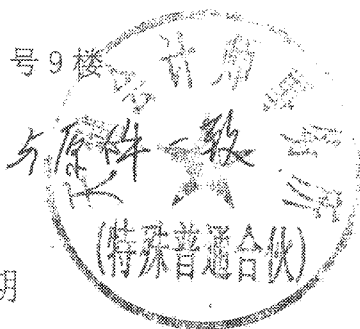 号9楼
计师事务所
与原件一致
(特殊普通合伙)
明